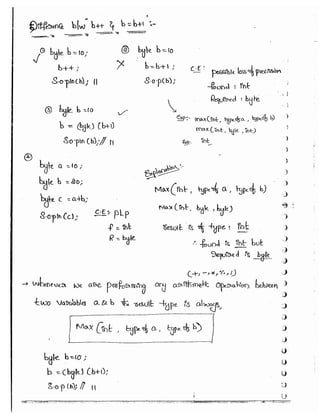 Difference b/w b++ & b=b+1 :-
① byte b=10;
b++;
S.o.pln(b); // 11
② byte b=10
b=b+1;
S.o.p(b);
C.E: possible loss of precision
found : int
Required : byte
③ byte b=10
b = (byte) (b+1)
S.o.pln(b); // 11
Exp:- max(int, type of a, type of b)
max(int, byte, int)
int
④
byte a =10;
byte b =20;
byte c =a+b;
S.o.pln(c);
C.E:- PLP
f = int
R = byte
Explanation:-
Max(int, type of a, type of b)
Max(int, byte, byte)
result is of type : int
∴ found is int but
required is byte
(+, -, *, %, /)
→ whenever we are performing any arithmetic operation between
two variables a & b the result type is always,
Max (int, type of a, type of b)
byte b=10;
b =(byte) (b+1);
S.o.p(b); // 11